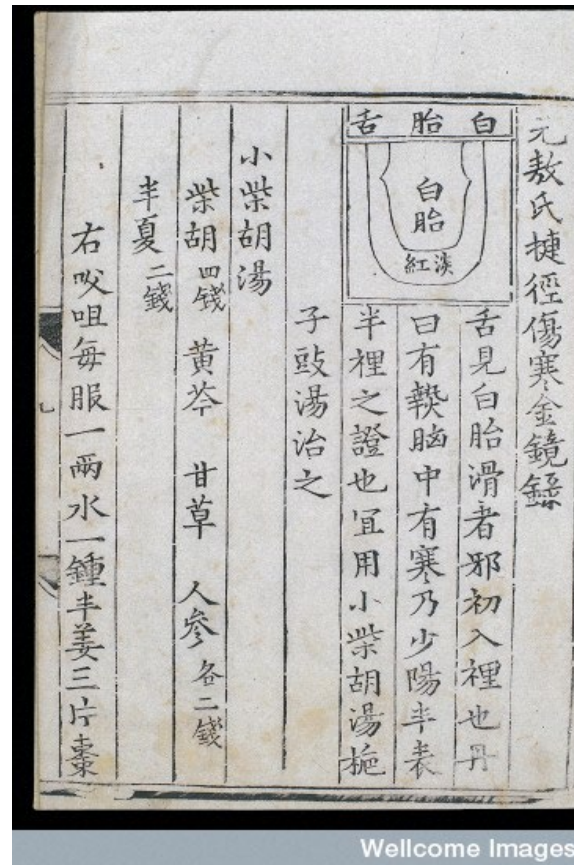 元敖氏揵徑傷寒金鏡錄
白胎舌
白胎
淡紅
舌見白胎滑者邪初入裡也丹
曰有𤍠胸中有寒乃少陽半表
半裡之證也宜用小柴胡湯梔
子豉湯治之
小柴胡湯
柴胡四錢 黄芩 甘草 人參各二錢
半夏二錢
右㕮咀每服一兩水一鍾半姜三片棗
七
Wellcome Images